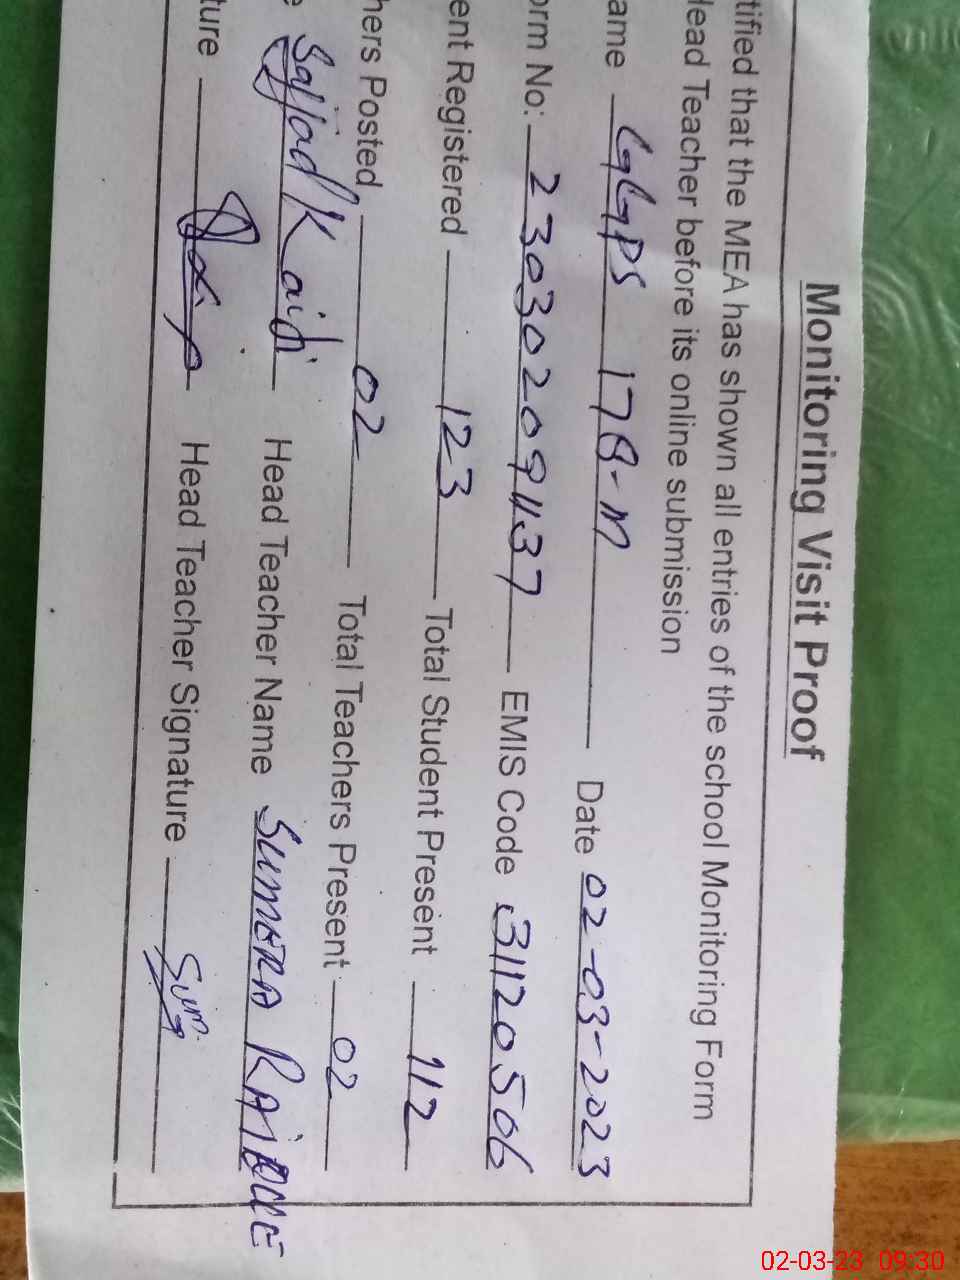 Monitoring Visit Proof
tified that the MEA has shown all entries of the school Monitoring Form
Head Teacher before its online submission
ame GGPS 178-M Date 02-03-2023
orm No: 230302091137 EMIS Code 31120506
ent Registered 123 Total Student Present 112
hers Posted 02 Total Teachers Present 02
e Sajjad Kaidi Head Teacher Name SUMERA
ture Head Teacher Signature Sum
02-03-23 09:30